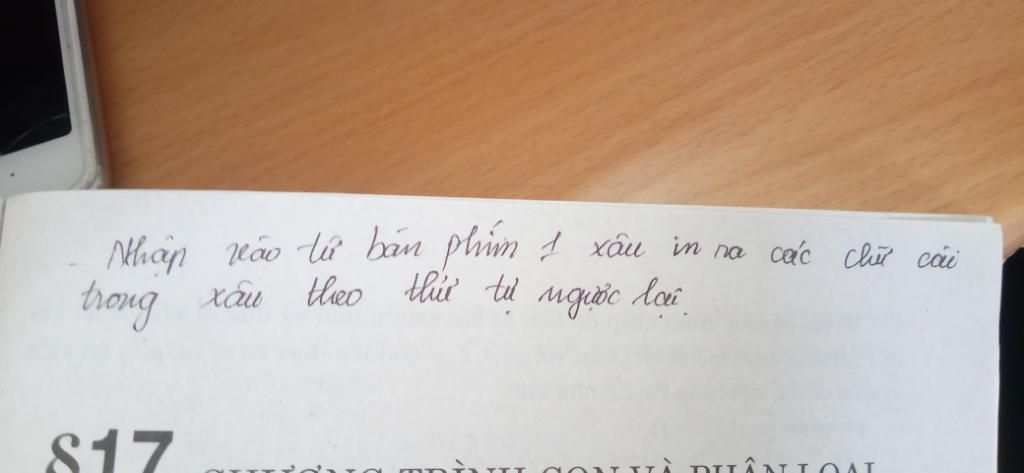 - Nhập vào từ bàn phím 1 xâu in ra các chữ cái
trong xâu theo thứ tự ngược lại.
§17 CHƯƠNG TRÌNH CON VÀ PHÂN LOẠI